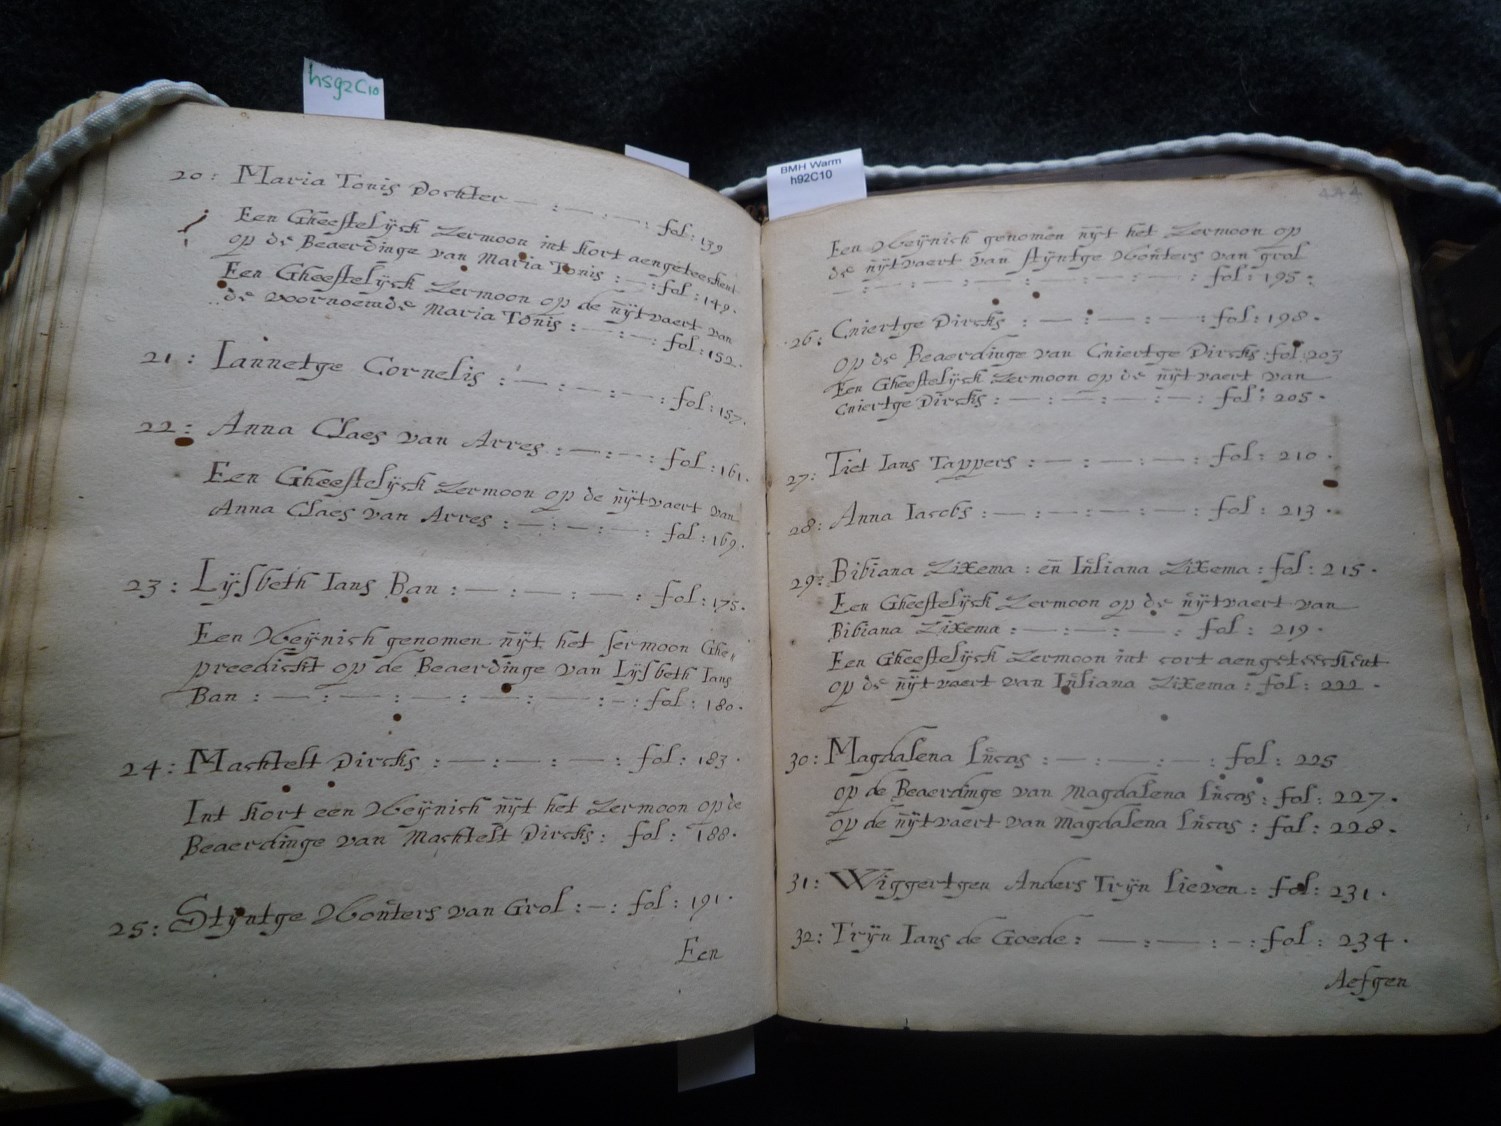 hsg2C10
BMH Warm
h92C10
20: Maria Tonis Dochter — : — : — : fol: 139
Een Gheestelÿck Zermoon int kort aengeteeckent
op de Beaerdinge van Maria Tonis : — : fol: 149.
Een Gheestelÿck Zermoon op de ũÿtvaert van
de voornoemde Maria Tonis : — : — : fol: 152.
21: Iannetge Cornelis : — : — : — : fol: 157.
22: Anna Claes van Arres : — : — : fol: 161.
Een Gheestelÿck Zermoon op de ũÿtvaert van
Anna Claes van Arres : — : — : fol: 169.
23: Lÿsbeth Ians Ban : — : — : — : fol: 175.
Een Weÿnich genomen ũÿt het sermoon Ghe
preedickt op de Beaerdinge van Lÿsbeth Ians
Ban : — : — : — : — : — : — : fol: 180.
24: Machtelt Dircks : — : — : — : fol: 183.
Int kort een Weÿnich ũÿt het Zermoon op de
Beaerdinge van Machtelt Dircks : fol: 188.
25: Stÿntge Woũters van Grol : — : fol: 191.
Een
444
Een Weÿnich genomen ũÿt het Zermoon op
de ũÿtvaert van stÿntge Woũters van grol
— : — : — : — : — : — : fol: 195.
26: Cniertge Dircks : — : — : — : fol: 198.
op de Beaerdinge van Cniertge Dircks fol: 203
Een Gheestelÿck Zermoon op de ũÿtvaert van
Cniertge Dircks : — : — : — : — : fol: 205.
27: Tiet Ians Tappers : — : — : — : fol: 210.
28: Anna Iacobs : — : — : — : — : fol: 213.
29: Bibiana Zixema : eñ Iũliana Zixema : fol: 215.
Een Gheestelÿck Zermoon op de ũÿtvaert van
Bibiana Zixema : — : — : — : fol: 219.
Een Gheestelÿck Zermoon int cort aengeteeckent
op de ũÿtvaert van Iũliana Zixema : fol: 222.
30: Magdalena Lũcas : — : — : — : fol: 225
op de Beaerdinge van Magdalena Lũcas : fol: 227.
op de ũÿtvaert van Magdalena Lũcas : fol: 228.
31: Wiggertgen Anders Trÿn Lieven : fol: 231.
32: Trÿn Ians de Goede : — : — : — : fol: 234.
Aefgen